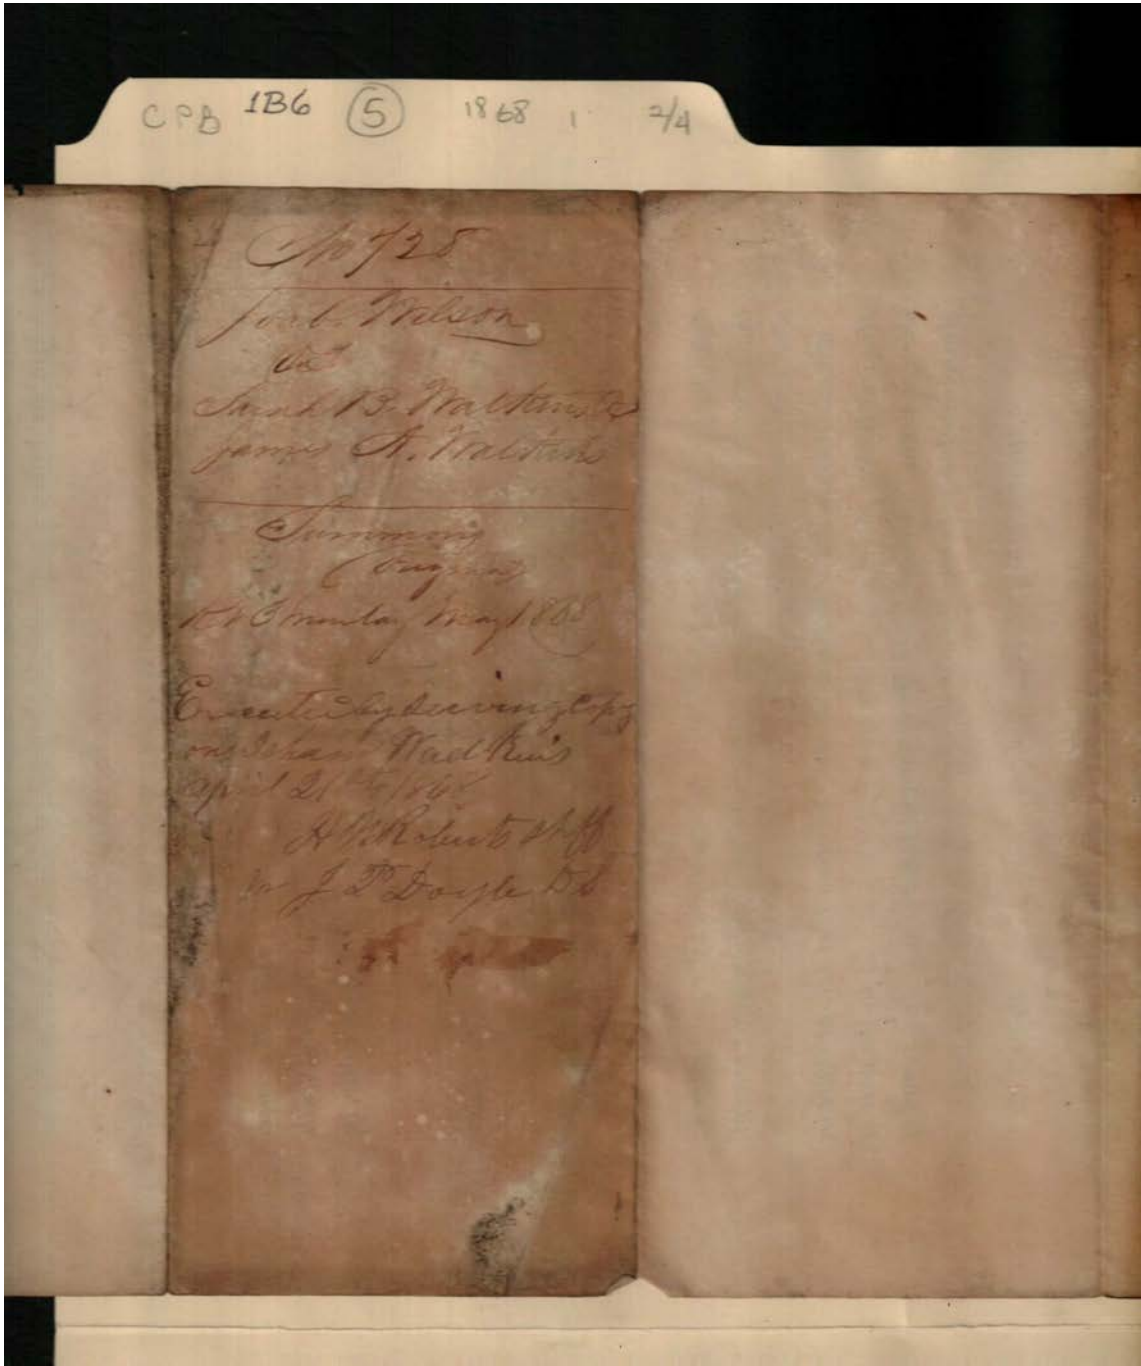 CPB 1B6 5 1868 1 2/4
No 725
Wilson
vs
Sarah B. Watkins &
James A. Watkins
Summons
Original
Monday May 1868
Executed by Serving Copy
on Isham Wadkins
april 21st 1868
Roberts Shff
J P Doyle D S